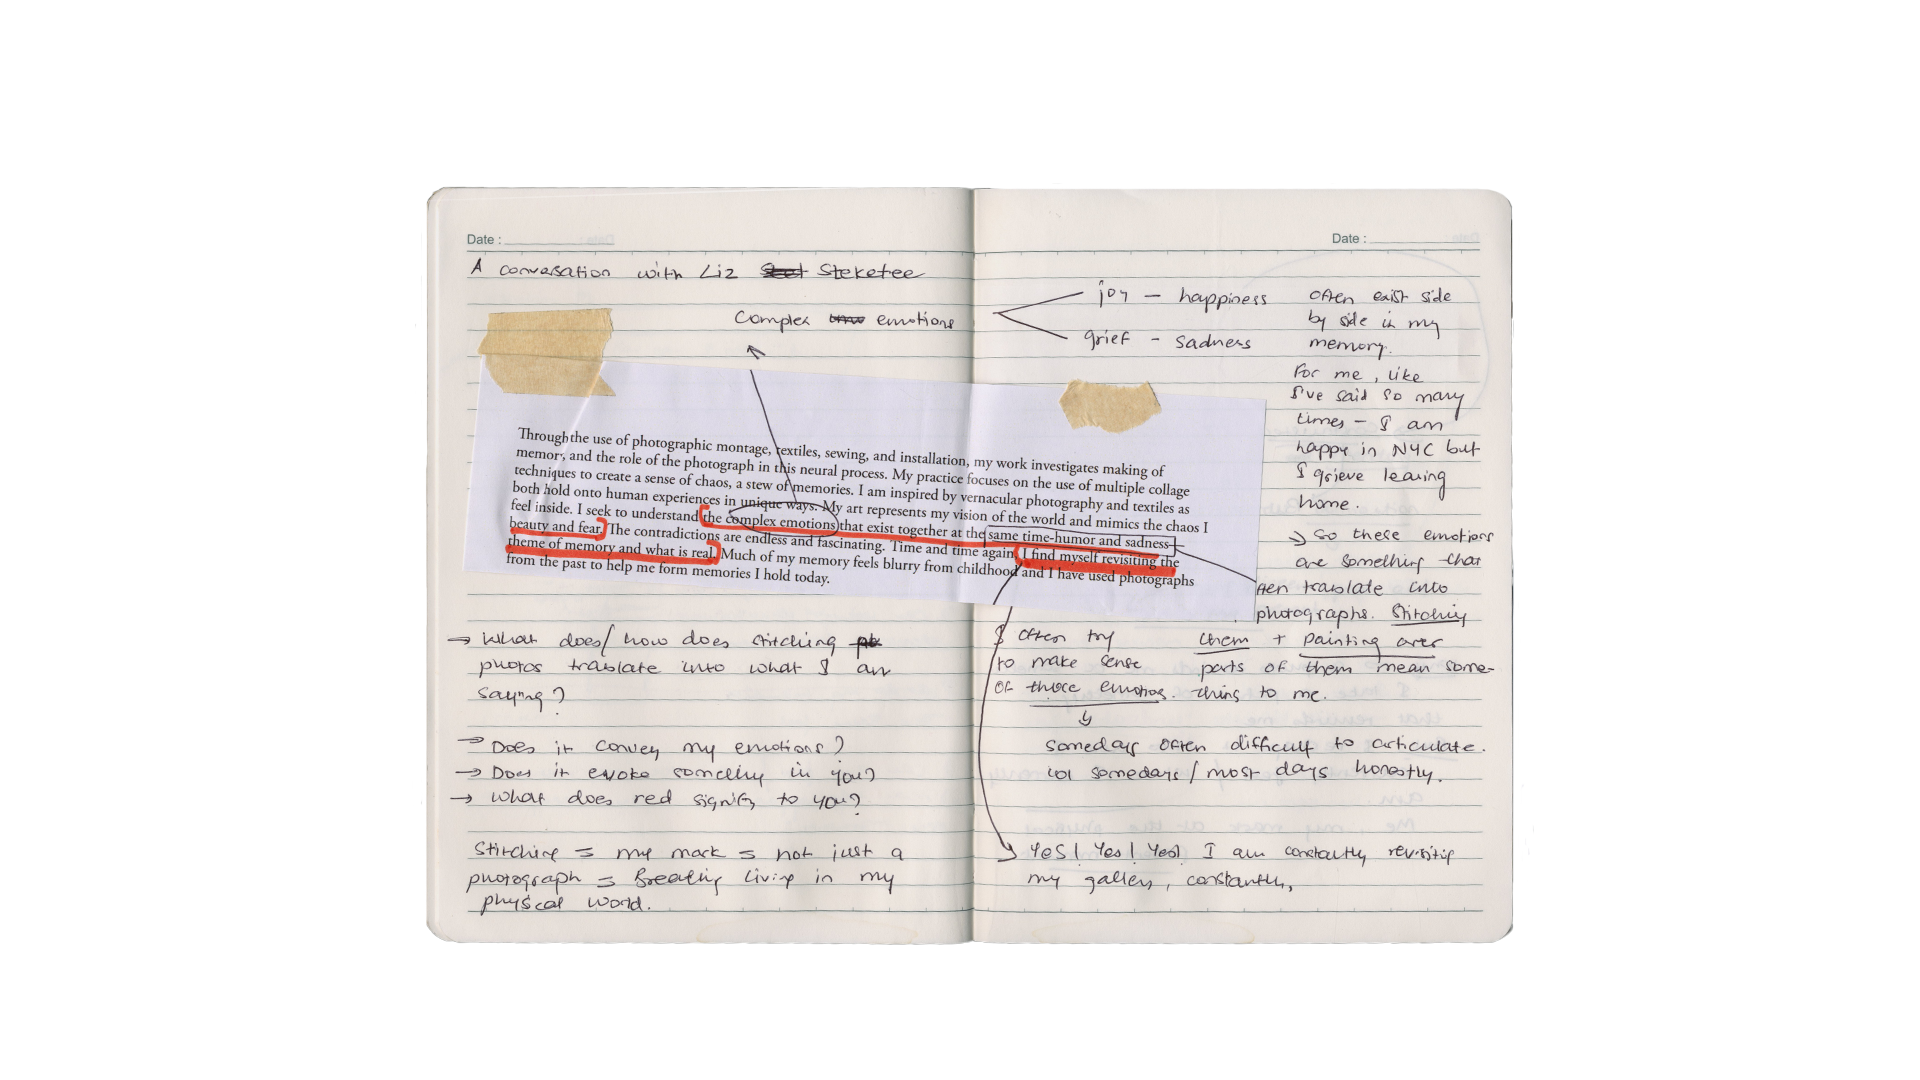 Date :
A conversation with Liz Steketee
Complex emotions
Through the use of photographic montage, textiles, sewing, and installation, my work investigates making of
memory, and the role of the photograph in this neural process. My practice focuses on the use of multiple collage
techniques to create a sense of chaos, a stew of memories. I am inspired by vernacular photography and textiles as
both hold onto human experiences in unique ways. My art represents my vision of the world and mimics the chaos I
feel inside. I seek to understand the complex emotions that exist together at the same time-humor and sadness-
beauty and fear. The contradictions are endless and fascinating. Time and time again, I find myself revisiting the
theme of memory and what is real. Much of my memory feels blurry from childhood and I have used photographs
from the past to help me form memories I hold today.
→ What does/how does stitching
photos translate into what I am
saying?
→ Does it convey my emotions?
→ Does it evoke something in you?
→ What does red signify to you?
Stitching = my mark = not just a
photograph = Breathing living in my
physical world.
Date :
joy – happiness
grief – sadness
often exist side
by side in my
memory.
For me, like
I've said so many
times – I am
happy in NYC but
I grieve leaving
home.
→ so these emotions
are something that
ften translate into
photographs. Stitching
them + painting over
parts of them mean some-
thing to me.
I often try
to make sense
of those emotions.
somedays often difficult to articulate.
lol somedays/most days honestly.
Yes! Yes! Yes! I am constantly revisiting
my gallery, constantly,